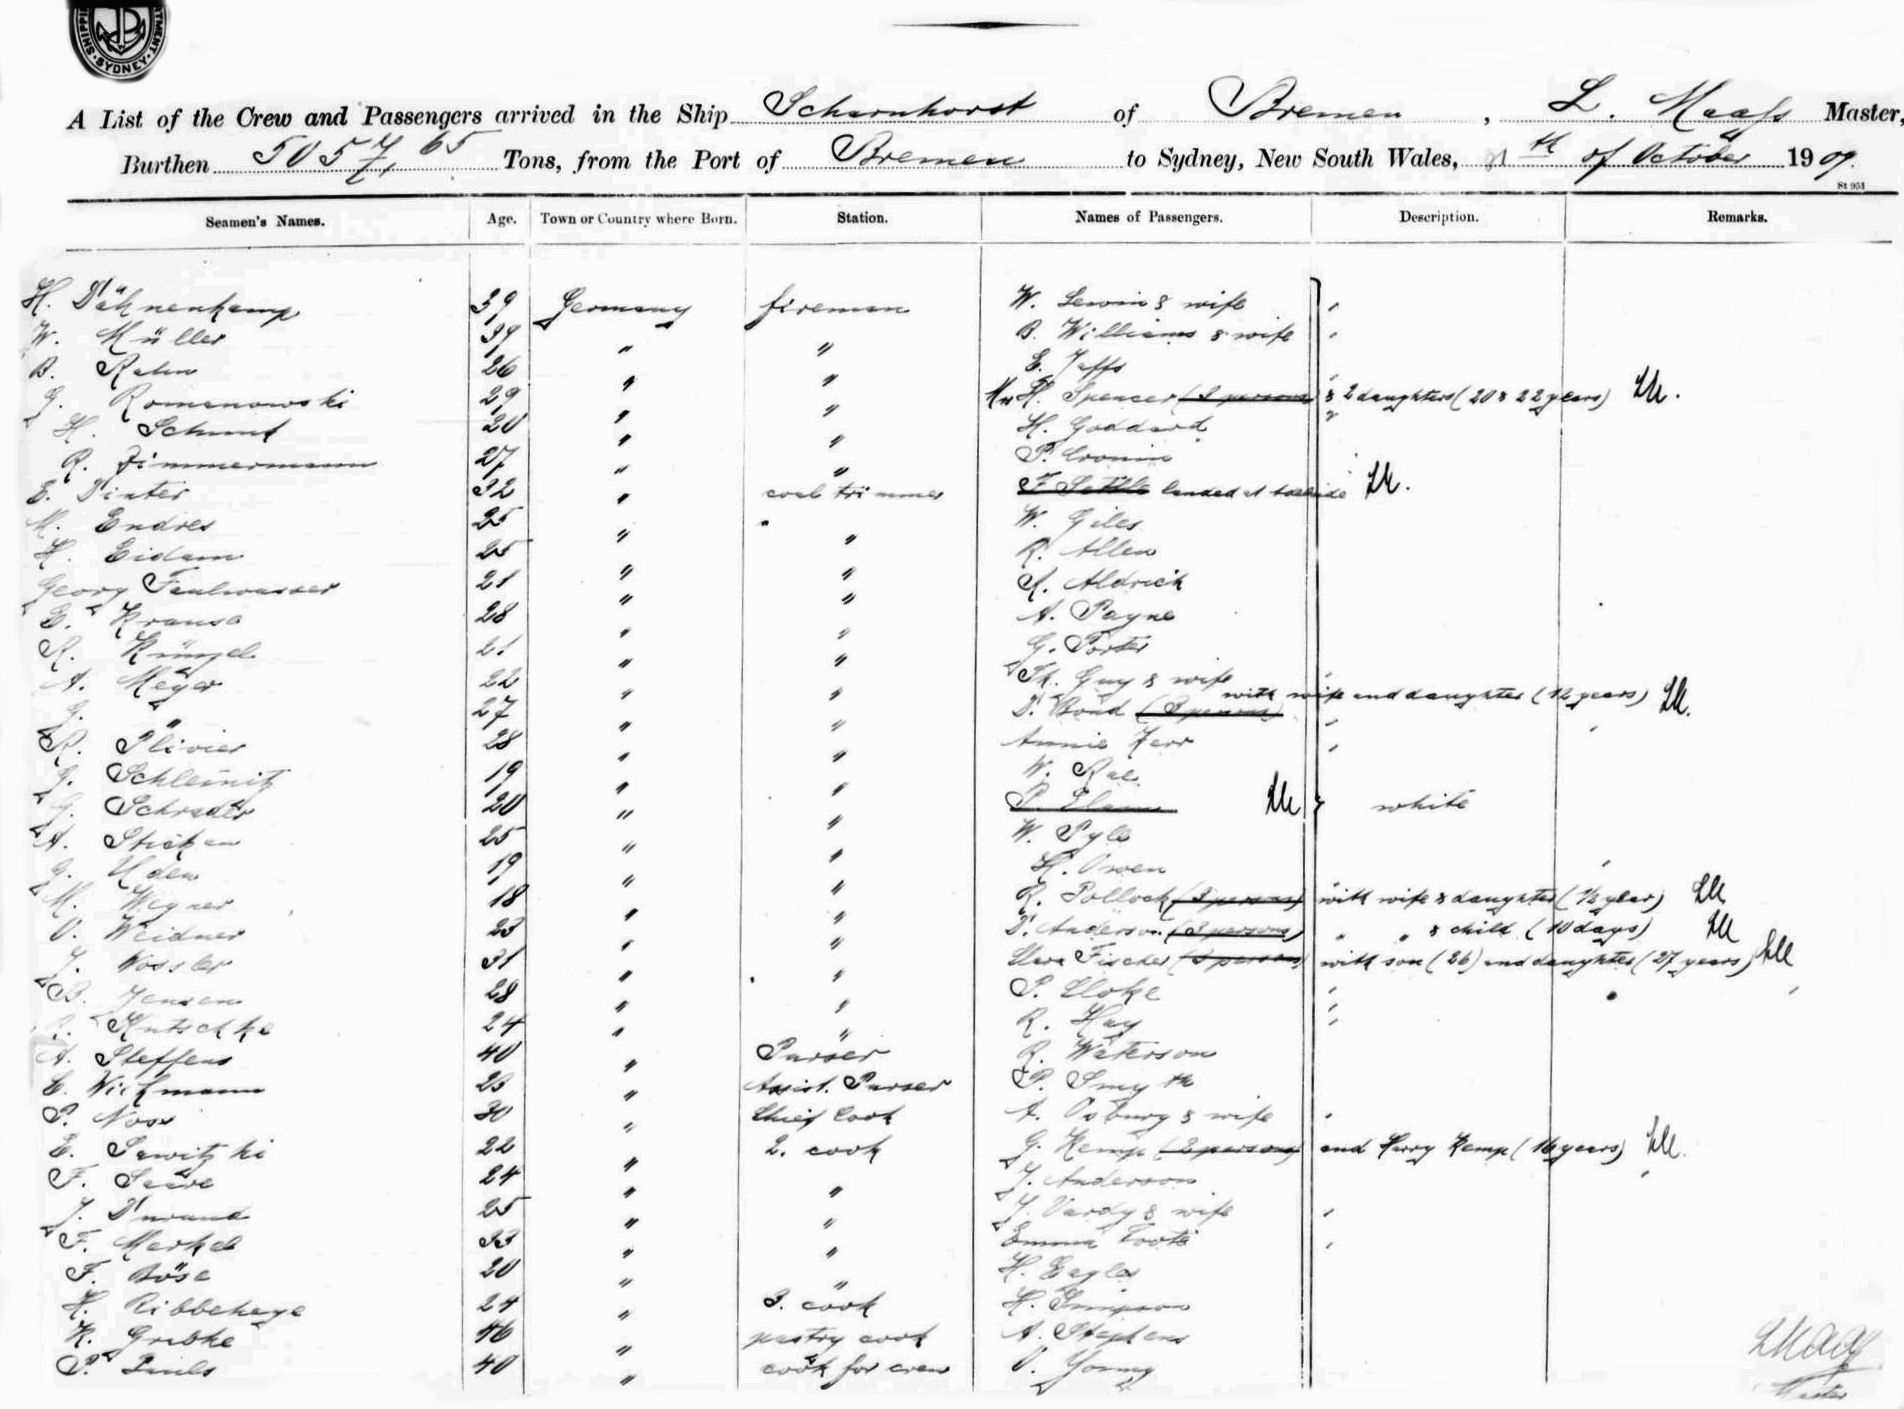 SHIPPI
TMENT
SYDNEY
A List of the Crew and Passengers arrived in the Ship Scharnhorst of Bremen, L. Maass Master,
Burthen 5057,65 Tons, from the Port of Bremen to Sydney, New South Wales, th of October 1909
St 951
Seamen's Names. Age. Town or Country where Born. Station. Names of Passengers. Description. Remarks.
H. Dähnenkamp 39 Germany fireman W. Lewin & wife "
W. Müller 39 " " B. Williams & wife "
B. Rahn 26 " " E. Jeffs
G. Romanowski 29 " " Mrs H. Spencer (3 persons) & 2 daughters (20 & 22 years) LM.
H. 20 " " H. Goddard "
R. Zimmermann 27 " " P. Cronin
E. Dinter 32 " coal trimmer F. Settle landed at LM.
M. Endres 25 " " W. Giles
H. Eidam 25 " " R. Allen
Georg Faulwasser 21 " " A. Aldrich
E. Krause 28 " " A. Payne
R. 21 " " G. Porter
A. Meyer 22 " " Th. Guy & wife "
G. " 27 " " D. Bond (3 persons) with wife and daughter (12 years) LM.
R. Plivier 28 " " Annie Kerr "
G. Schleinitz 19 " " W. Rae
G. Schrader 20 " " P. LM & white
A. 25 " " W. Pyle
G. Uden 19 " " H. Owen
M. Wegner 18 " " R. Pollock (3 persons) with wife & daughter (½ year) LM
O. Weidner 23 " " D. Anderson (3 persons) " " & child (10 days) LM
J. Vossler 31 " " Clara Fischer (3 persons) with son (26) and daughter (27 years) LM
B. Jensen 28 " " P. Cloke "
Kutschke 24 " " R. Hay "
A. Steffens 40 " Purser R. Waterson
C. Wichmann 23 " Assist. Purser P. Smyth
P. Noss 30 " Chief Cook A. Osbury & wife "
E. Sawitzki 22 " 2. cook G. Kemp (2 persons) and Harry Kemp (16 years) LM.
F. 24 " " J. Anderson
J. Durand 25 " " J. Vardy & wife "
F. Merkel 33 " " Emma Foote "
F. Böse 20 " " H. Eagles
H. Ribbehege 24 " 3. cook H. Simpson
K. Grubke 46 " pastry cook A. Stephens
P. 40 " cook for crew O. Young
LMaass
Master